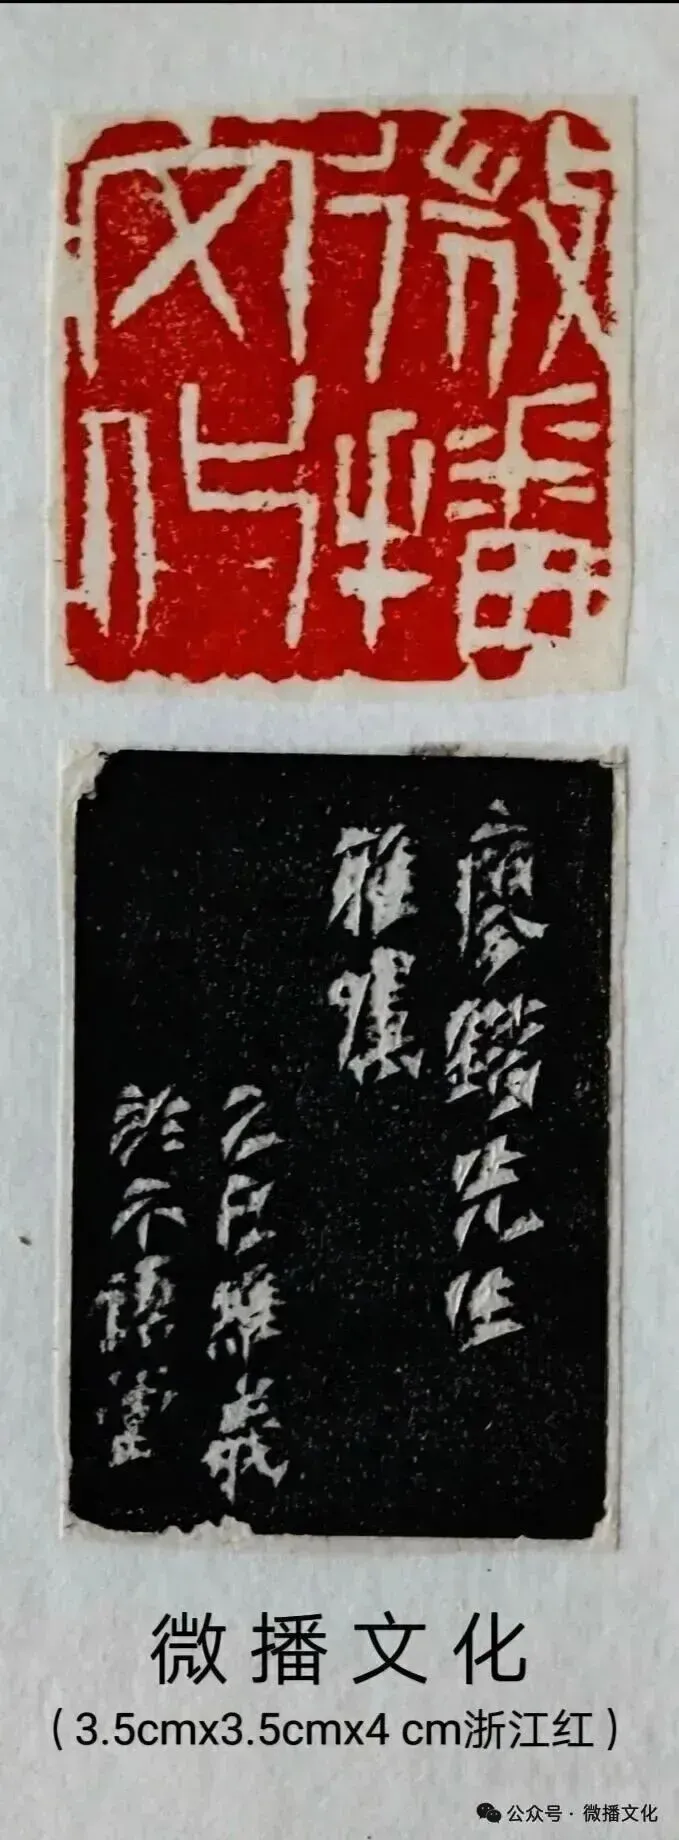 微播
文化
廖先生
雅
乙巳維義
於不語
微播文化
(3.5cmx3.5cmx4 cm浙江红)
公众号·微播文化